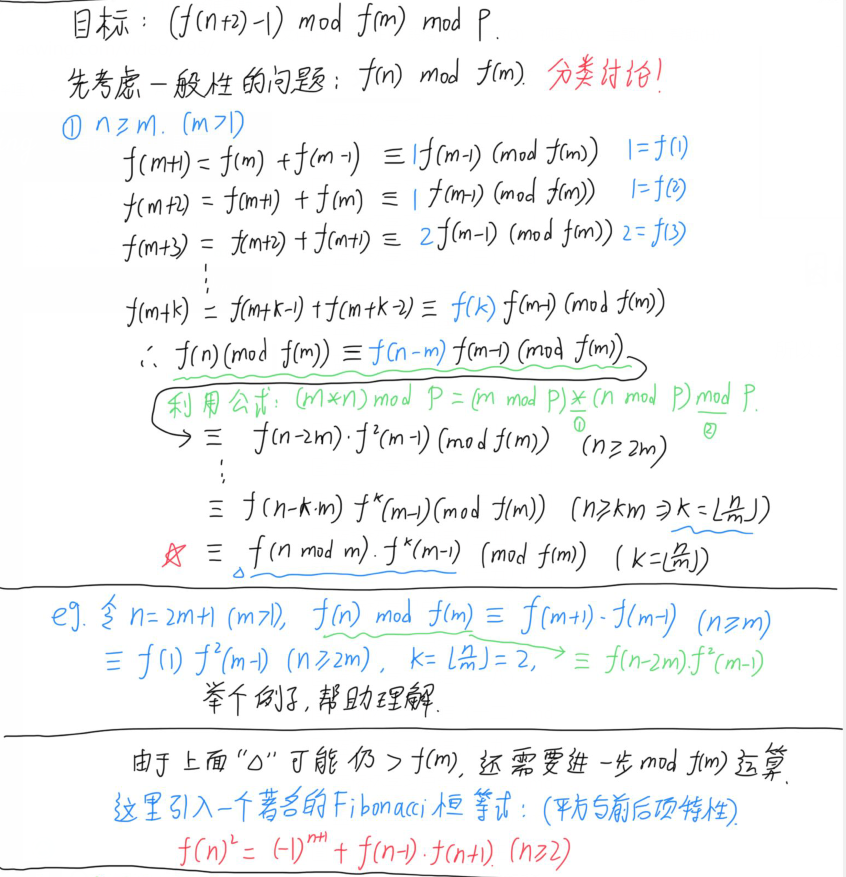 目标：(f(n+2)-1) mod f(m) mod P.
先考虑一般性的问题：f(n) mod f(m). 分类讨论！
① n≥m. (m>1)
f(m+1) = f(m) + f(m-1) ≡ 1f(m-1) (mod f(m)) 1=f(1)
f(m+2) = f(m+1) + f(m) ≡ 1 f(m-1) (mod f(m)) 1=f(2)
f(m+3) = f(m+2) + f(m+1) ≡ 2f(m-1) (mod f(m)) 2=f(3)
⋮
f(m+k) = f(m+k-1) + f(m+k-2) ≡ f(k) f(m-1) (mod f(m))
∴ f(n) (mod f(m)) ≡ f(n-m) f(m-1) (mod f(m))
利用公式：(m*n) mod P = (m mod P) * (n mod P) mod P.
① ②
≡ f(n-2m)·f²(m-1) (mod f(m)) (n≥2m)
⋮
≡ f(n-k·m) fᵏ(m-1) (mod f(m)) (n≥km ⇒ k=⌊n/m⌋)
☆ ≡ △ f(n mod m)·fᵏ(m-1) (mod f(m)) (k=⌊n/m⌋)
eg. 令 n=2m+1 (m>1), f(n) mod f(m) ≡ f(m+1)·f(m-1) (n≥m)
≡ f(1) f²(m-1) (n≥2m), k=⌊n/m⌋=2, → ≡ f(n-2m)·f²(m-1)
举个例子,帮助理解.
由于上面“△”可能仍>f(m),还需要进一步mod f(m)运算.
这里引入一个著名的Fibonacci恒等式：(平方与前后项特性).
f(n)² = (-1)ⁿ⁺¹ + f(n-1)·f(n+1). (n≥2)